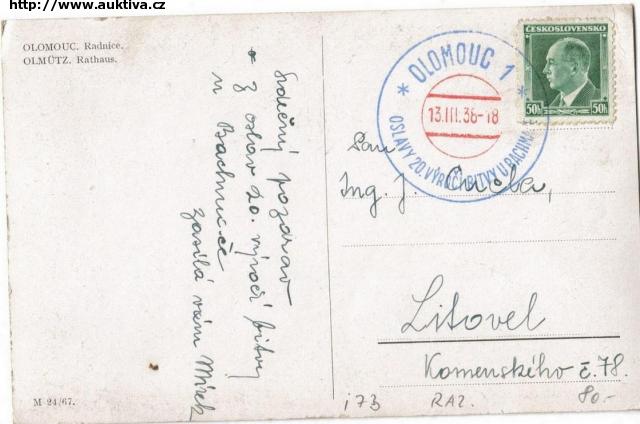 http://www.auktiva.cz
OLOMOUC. Radnice.
OLMÜTZ. Rathaus.
Srdečný pozdrav
z oslav 20. výročí bitvy
u Bachmače
zasílá vám Mirek
* OLOMOUC 1 *
13.III.38-18
OSLAVY 20. VÝROČÍ BITVY U BACHMAČE
ČESKOSLOVENSKO
50h 50h
Pan
Ing. J.
Litovel
Komenského č. 78.
M 24/67.
173 RAZ. 80.-